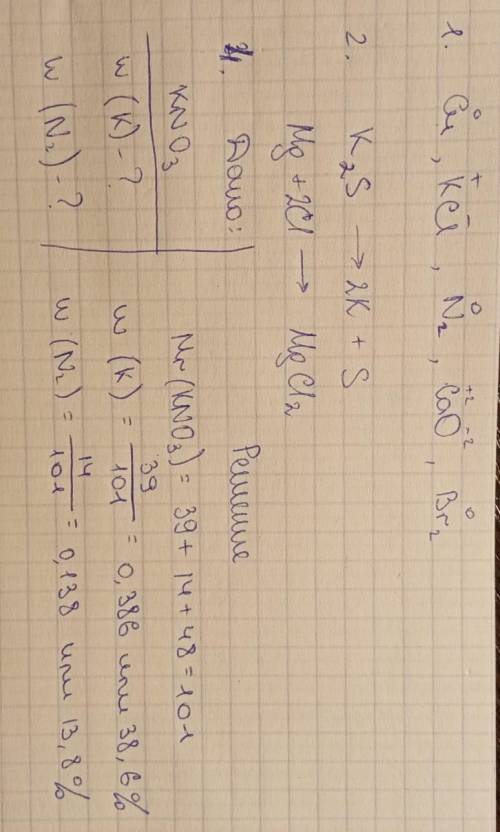 1. Cu⁰, K⁺Cl⁻, N₂⁰, Ca⁺²O⁻², Br₂⁰
2. K₂S → 2K + S
Mg + 2Cl → MgCl₂
4. Дано:
KNO₃
w (K) - ?
w (N₂) - ?
Решение
Mr (KNO₃) = 39 + 14 + 48 = 101
w (K) = 39/101 = 0,386 или 38,6%
w (N₂) = 14/101 = 0,138 или 13,8%